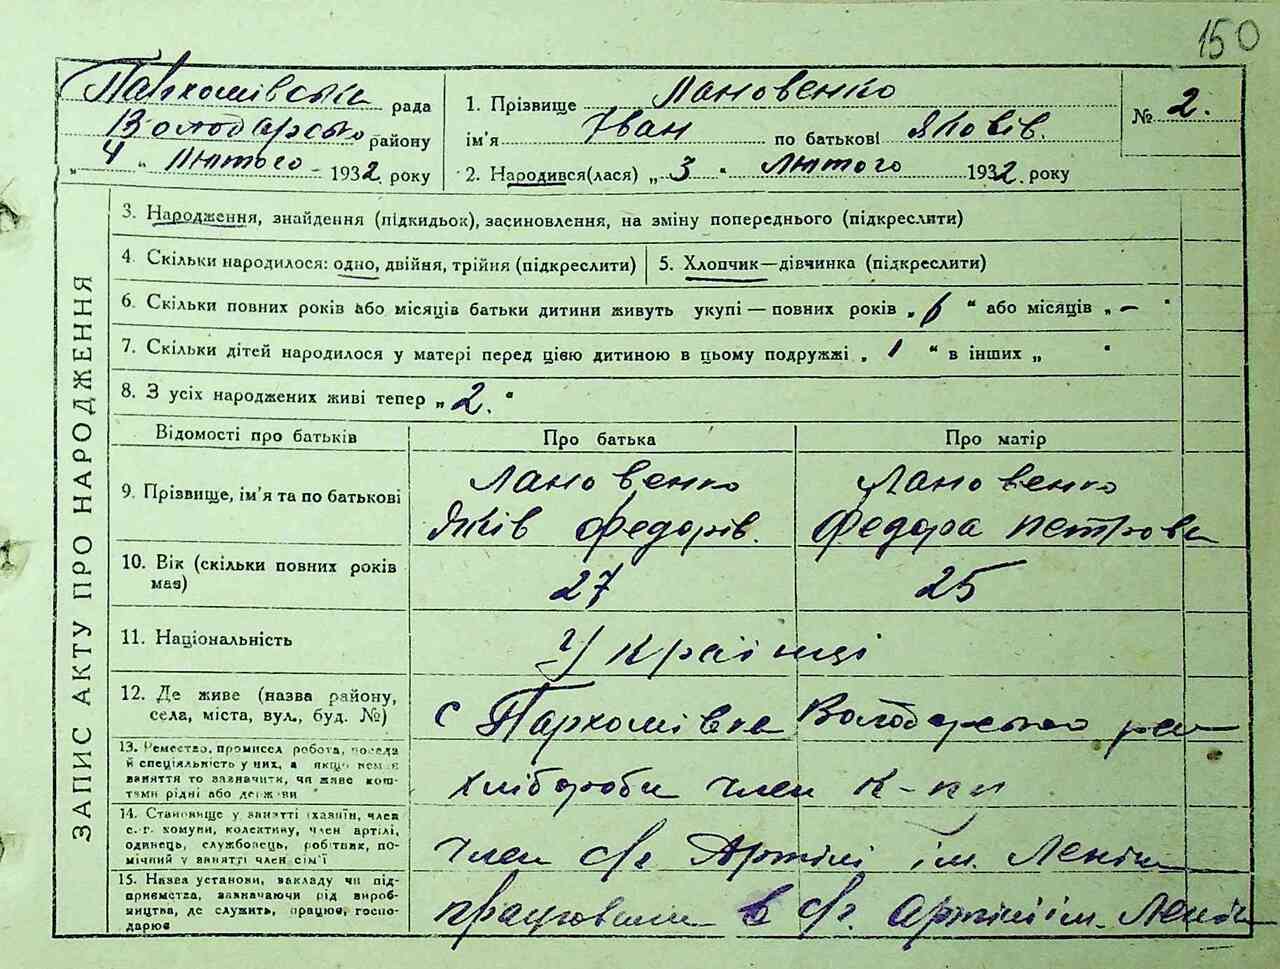 150
Пархомівська рада
Володарсько району
„ 4 “ Лютого - 1932 року
1. Прізвище Лановенко
ім'я Іван по батькові Яковів.
2. Народився(лася) „ 3 “ Лютого 1932. року
№ 2.
ЗАПИС АКТУ ПРО НАРОДЖЕННЯ
3. Народження, знайдення (підкидьок), засиновлення, на зміну попереднього (підкреслити)
4. Скільки народилося: одно, двійня, трійня (підкреслити)
5. Хлопчик—дівчинка (підкреслити)
6. Скільки повних років або місяців батьки дитини живуть укупі — повних років „ 6 “ або місяців „ – “
7. Скільки дітей народилося у матері перед цією дитиною в цьому подружжі „ 1 “ в інших „ “
8. З усіх народжених живі тепер „ 2. “
Відомості про батьків Про батька Про матір
9. Прізвище, ім'я та по батькові
Лановенко
Яків Федорів.
Лановенко
Федора Петрова
10. Вік (скільки повних років
має)
27 25
11. Національність Українці
12. Де живе (назва району,
села, міста, вул., буд. №)
с Пархомівка Володарського рай
13. Ремество, промисел робота, посада
й спеціяльність у них, а якщо нема
заняття то зазначити, чи живе кош-
тами рідні або держави
хлібороби член к-пу
14. Становище у занятті (хазяїн, член
с.-г. комуни, колективу, член артілі,
одинець, службовець, робітник, по-
мічний у занятті член сім'ї
член с/г Артілі ім. Леніна
15. Назва установи, закладу чи під-
приємства, зазначаючи рід вироб-
ництва, де служить, працює, госпо-
дарює
працювали в с/г артілі ім. Леніна